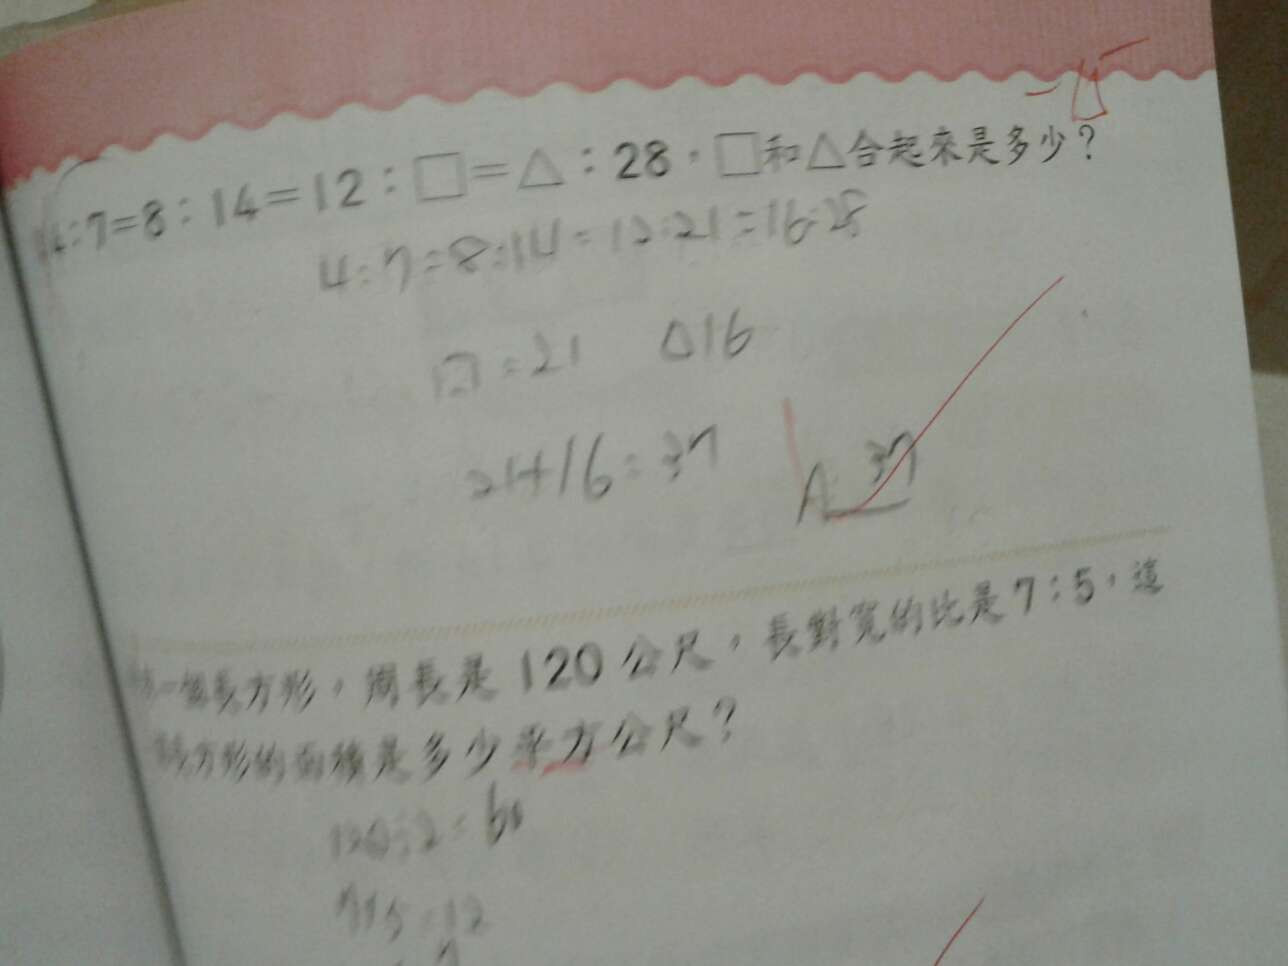 :7=8:14=12:□=△:28,□和△合起來是多少?
4:7=8:14=12:21=16:28
□=21 △16
21+16=37
A 37
一個長方形,周長是120公尺,長對寬的比是7:5,這
方形的面積是多少平方公尺?
120÷2=60
7+5=12